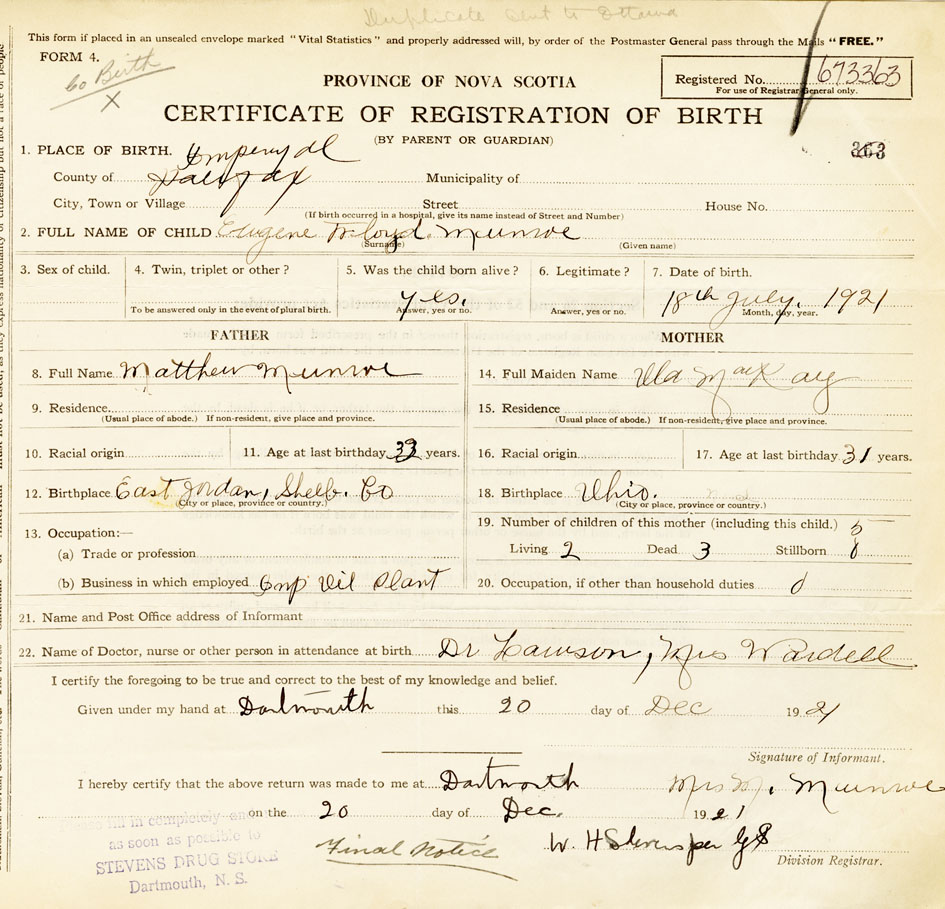 Duplicate sent to Ottawa
This form if placed in an unsealed envelope marked "Vital Statistics" and properly addressed will, by order of the Postmaster General pass through the Mails "FREE."
FORM 4.
Co Birth
X
PROVINCE OF NOVA SCOTIA
Registered No. 673363
For use of Registrar General only.
CERTIFICATE OF REGISTRATION OF BIRTH
(BY PARENT OR GUARDIAN)
363
1. PLACE OF BIRTH. Imperoyal
County of Halifax Municipality of
City, Town or Village Street House No.
(If birth occurred in a hospital, give its name instead of Street and Number)
2. FULL NAME OF CHILD Eugene Floyd Munroe
(Surname) (Given name)
3. Sex of child. 4. Twin, triplet or other? 5. Was the child born alive? 6. Legitimate? 7. Date of birth.
yes. 18th July, 1921
To be answered only in the event of plural birth. Answer, yes or no. Answer, yes or no. Month, day, year.
FATHER MOTHER
8. Full Name Matthew Munroe
14. Full Maiden Name MacKay
9. Residence
(Usual place of abode.) If non-resident, give place and province.
15. Residence
(Usual place of abode.) If non-resident, give place and province.
10. Racial origin 11. Age at last birthday 33 years.
16. Racial origin 17. Age at last birthday 31 years.
12. Birthplace East Jordan, Shelb. Co
(City or place, province or country.)
18. Birthplace Ohio.
(City or place, province or country.)
13. Occupation:—
(a) Trade or profession
(b) Business in which employed Imp Oil Plant
19. Number of children of this mother (including this child.) 5
Living 2 Dead 3 Stillborn 0
20. Occupation, if other than household duties 0
21. Name and Post Office address of Informant
22. Name of Doctor, nurse or other person in attendance at birth Dr Lawson, Mrs Wardell
I certify the foregoing to be true and correct to the best of my knowledge and belief.
Given under my hand at Dartmouth this 20 day of Dec 1921
Signature of Informant.
I hereby certify that the above return was made to me at Dartmouth Mrs M. Munroe
on the 20 day of Dec. 1921
fill in completely an
as soon as possible to
STEVENS DRUG STORE
Dartmouth, N. S.
Final Notice
W H Stevens per
Division Registrar.